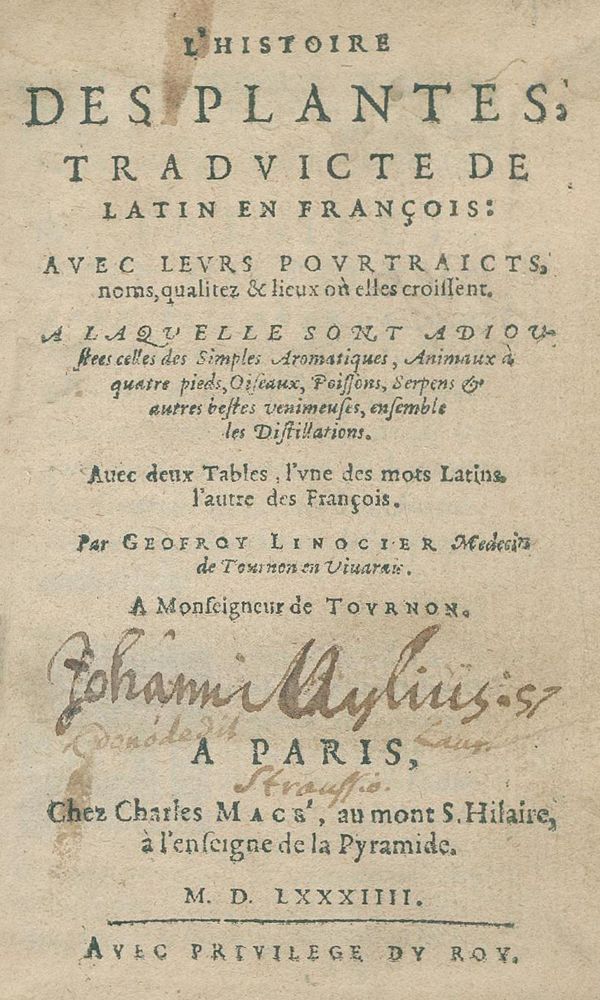 L'HISTOIRE
DES PLANTES,
TRADVICTE DE
LATIN EN FRANÇOIS:
AVEC LEVRS POVRTRAICTS,
noms, qualitez & lieux où elles croiſſent.
A LAQVELLE SONT ADIOV-
ſtees celles des Simples Aromatiques, Animaux à
quatre pieds, Oiſeaux, Poiſſons, Serpens &
autres beſtes venimeuſes, enſemble
les Diſtillations.
Auec deux Tables, l'vne des mots Latins
l'autre des François.
Par GEOFROY LINOCIER Medecin
de Tournon en Viuarais.
A Monſeigneur de TOVRNON.
Johânni Mylius
donó dedit Laur.
A PARIS,
Straussio.
Chez Charles MACÉ, au mont S. Hilaire,
à l'enſeigne de la Pyramide.
M. D. LXXXIIII.
AVEC PRIVILEGE DV ROY.